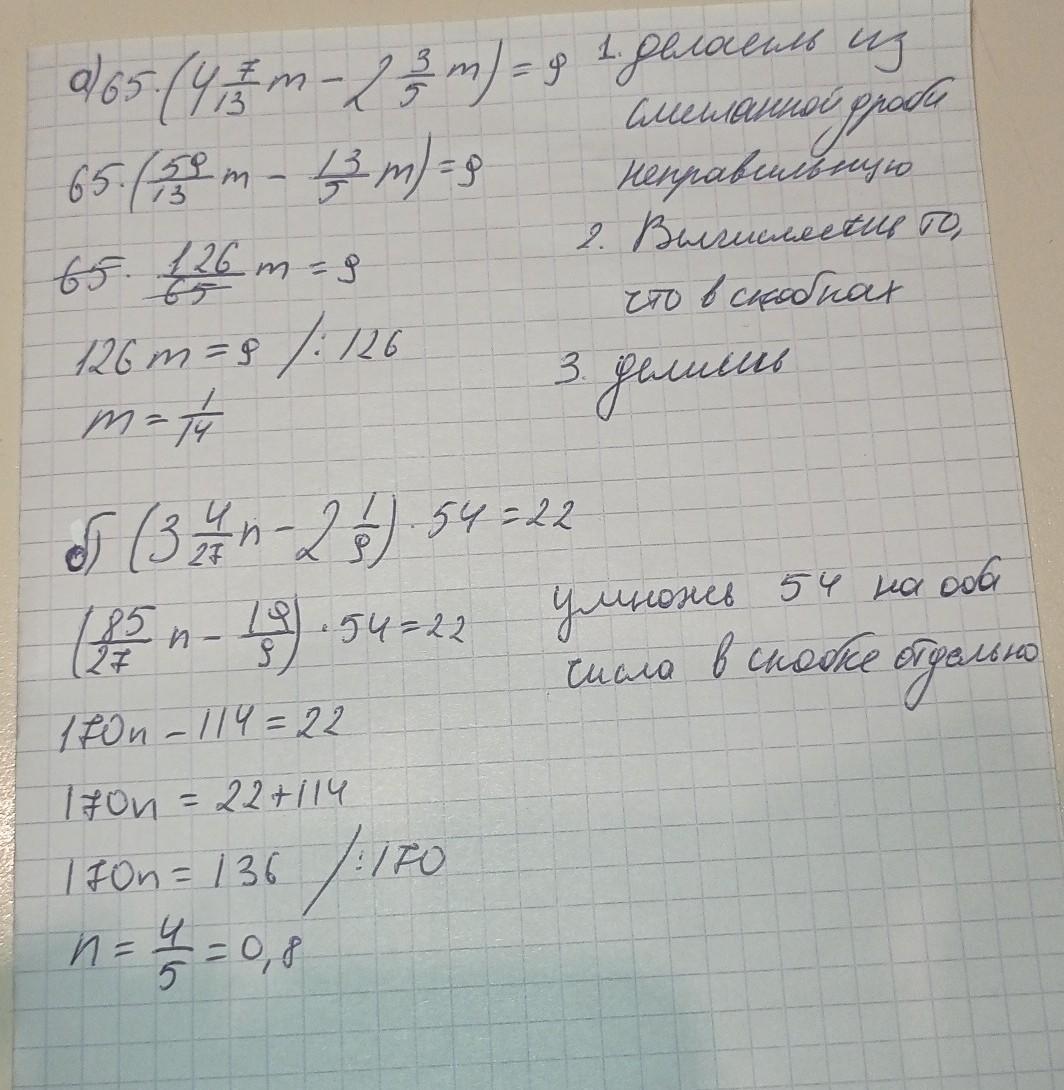 а) 65·(4 7/13 m − 2 3/5 m) = 9
65·(59/13 m − 13/5 m) = 9
65 · 126/65 m = 9
126 m = 9 /:126
m = 1/14
1. делаешь из
смешанной дроби
неправильную
2. Вычисляешь то,
что в скобках
3. делишь
б) (3 4/27 n − 2 1/9) · 54 = 22
(85/27 n − 19/9) · 54 = 22
170n − 114 = 22
170n = 22+114
170n = 136 /:170
n = 4/5 = 0,8
умножь 54 на оба
числа в скобке отдельно